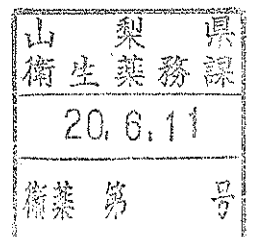 山梨県
衛生薬務課
20.6.11
衛薬第 号